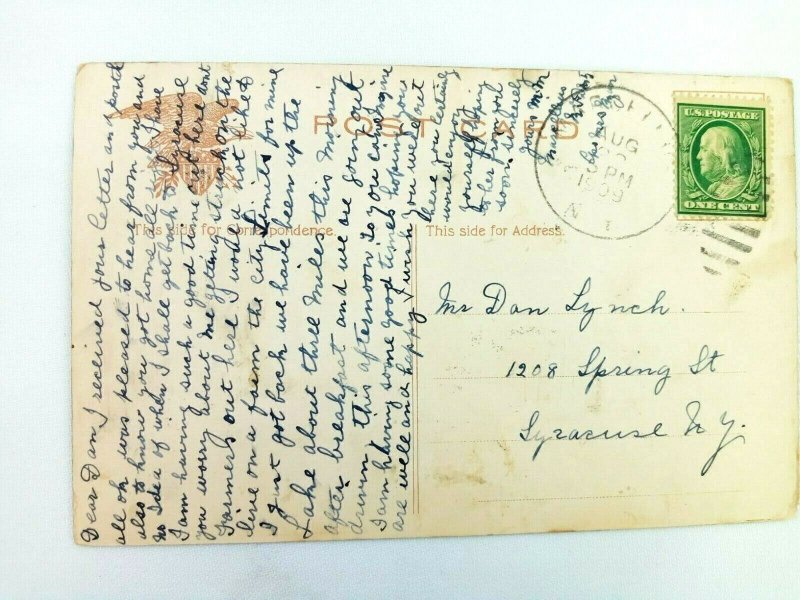 POST CARD
This side for Correspondence.
This side for Address.
AUG
PM
1909
N
U.S. POSTAGE
ONE CENT
Mr Dan Lynch.
1208 Spring St
Syracuse N.Y.
Dear Dan, I received your letter and post
all ok was pleased to hear from you and
also to know you got home all I have
no Idea of when I shall get back to Syracuse
I am having such a good time out here dont
you worry about me getting struck on the
Farmers out here I would not like to
live on a farm the city limits for mine
I Just got back we have been up the
Lake about three miles this morning
after breakfast and we are going out
driving this afternoon So you can Imagine
I am having some good times hoping you
are well and happy I wish you were out
here you certainly
would enjoy
yourself Hoping
to hear from you
soon